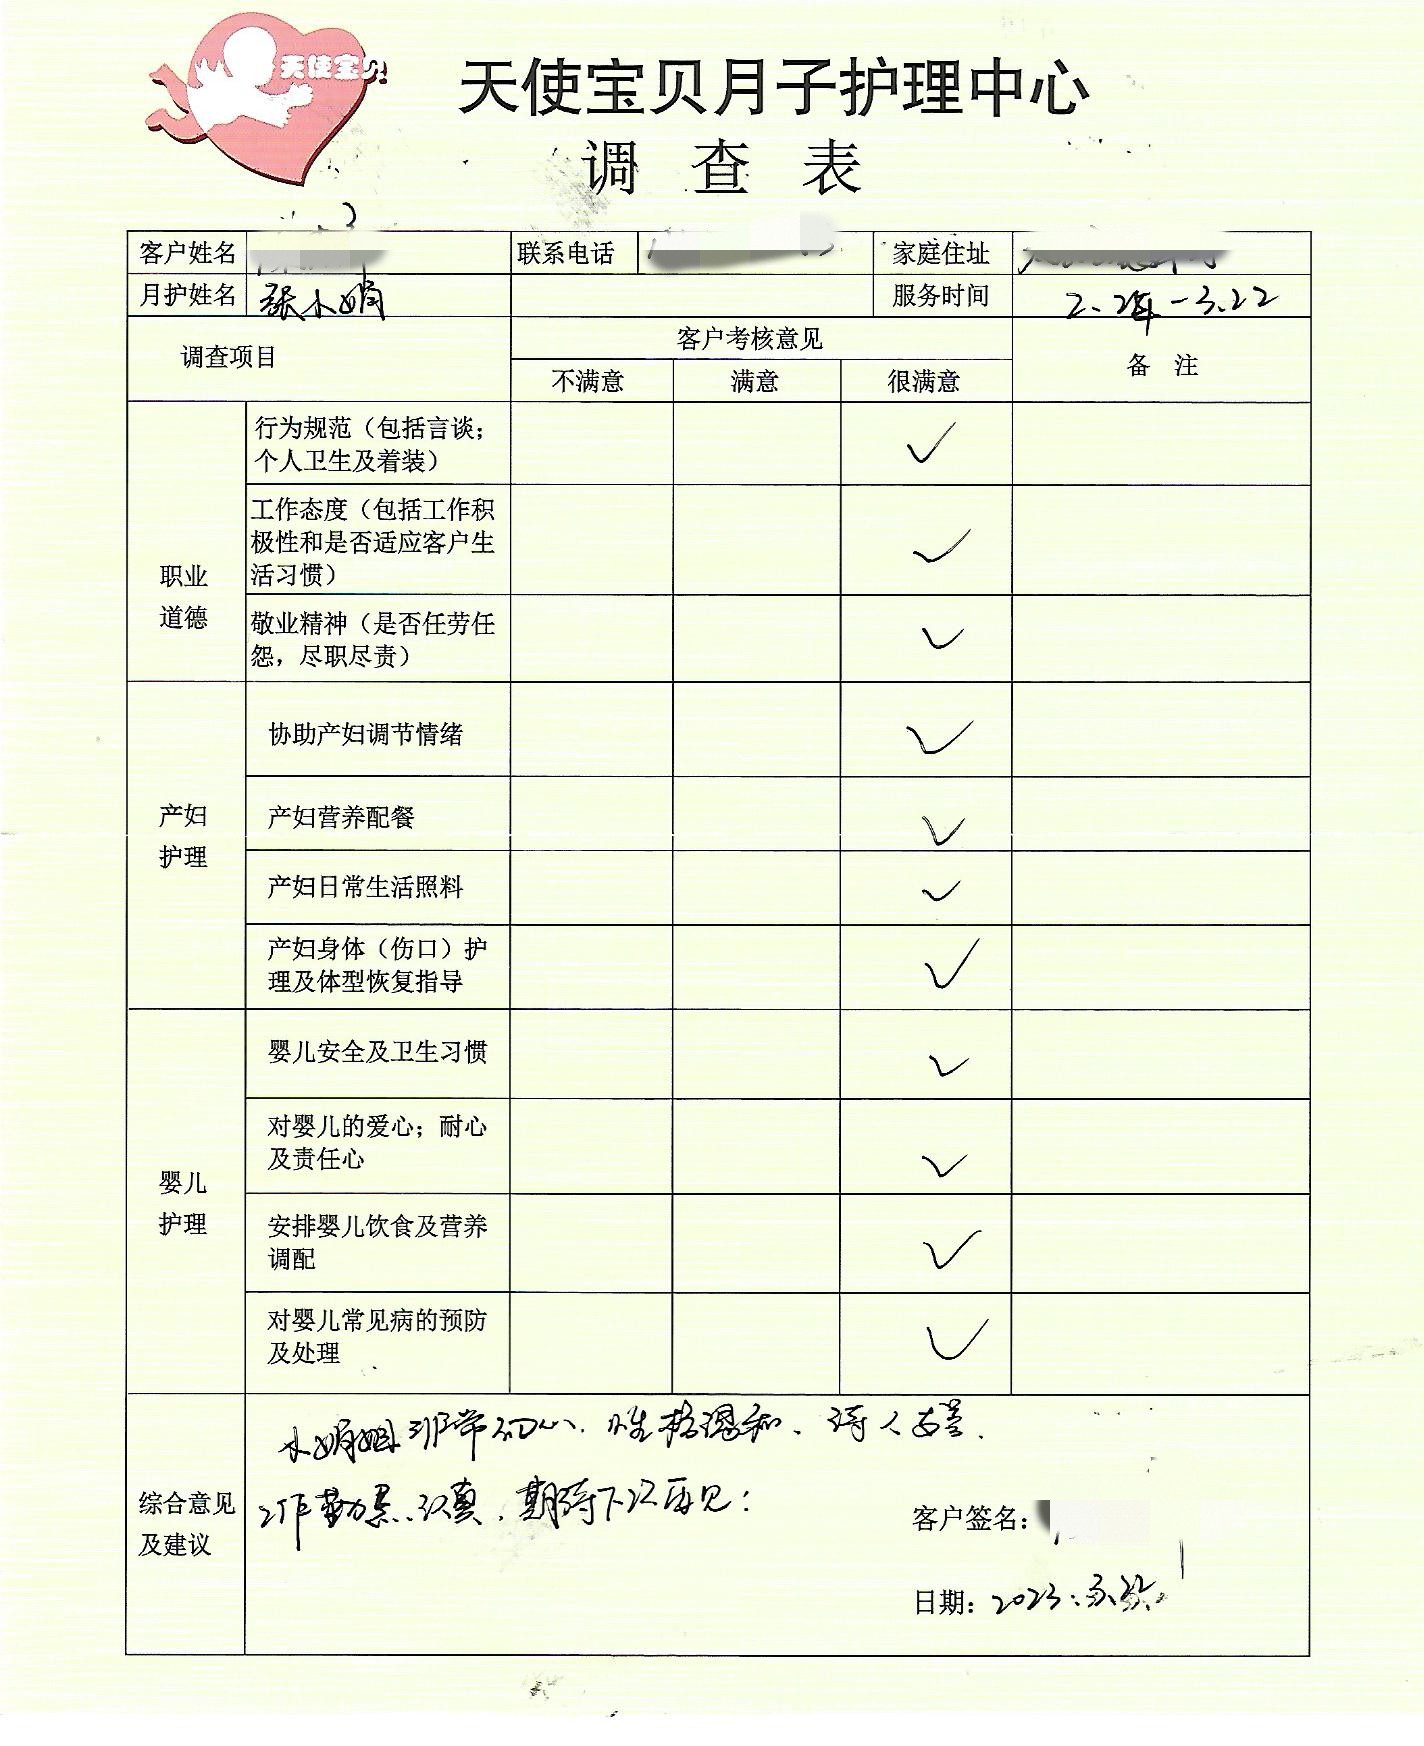 天使宝贝
天使宝贝月子护理中心
调 查 表
客户姓名 联系电话 家庭住址
月护姓名 张水娟 服务时间 2.24-3.22
调查项目 客户考核意见 备 注
不满意 满意 很满意
职业
道德
行为规范（包括言谈；
个人卫生及着装） ✓
工作态度（包括工作积
极性和是否适应客户生
活习惯） ✓
敬业精神（是否任劳任
怨，尽职尽责） ✓
产妇
护理
协助产妇调节情绪 ✓
产妇营养配餐 ✓
产妇日常生活照料 ✓
产妇身体（伤口）护
理及体型恢复指导 ✓
婴儿
护理
婴儿安全及卫生习惯 ✓
对婴儿的爱心；耐心
及责任心 ✓
安排婴儿饮食及营养
调配 ✓
对婴儿常见病的预防
及处理 ✓
综合意见
及建议
水娟姐非常细心、性格温和、待人友善.
工作勤恳、认真，期待下次再见！
客户签名：
日期：2023.3.22.